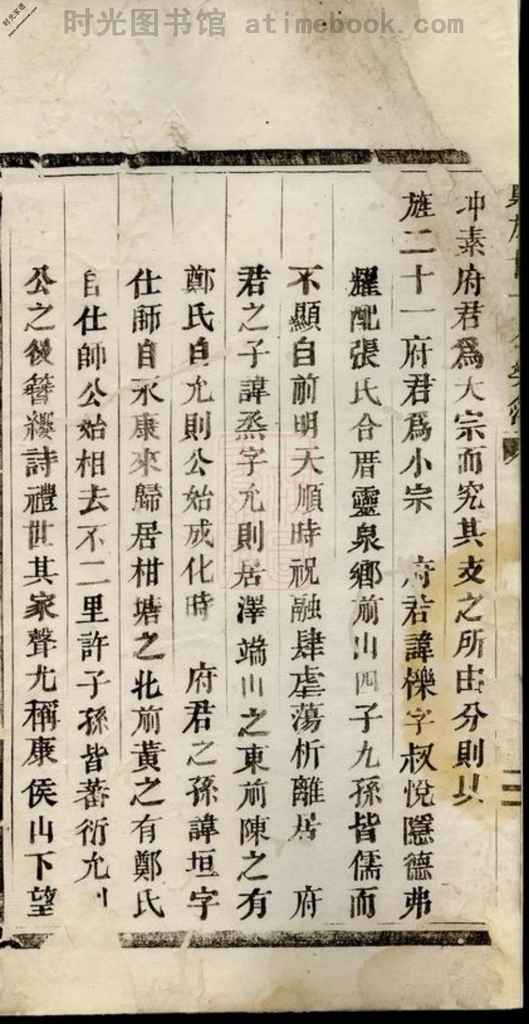 时光图书馆 atimebook.com
冲素府君爲大宗而究其支之所由分則以
旌二十一府君爲小宗 府君諱櫟字叔悅隱德弗
耀配張氏合厝靈泉鄉前山四子九孫皆儒而
不顯自前明天順時祝融肆虐蕩析離居 府
君之子諱烝字允則居澤端山之東前陳之有
鄭氏自允則公始成化時 府君之孫諱垣字
仕師自永康來歸居柑塘之北前黃之有鄭氏
自仕師公始相去不二里許子孫皆蕃衍允
公之後簪纓詩禮世其家聲尤稱康侯山下望